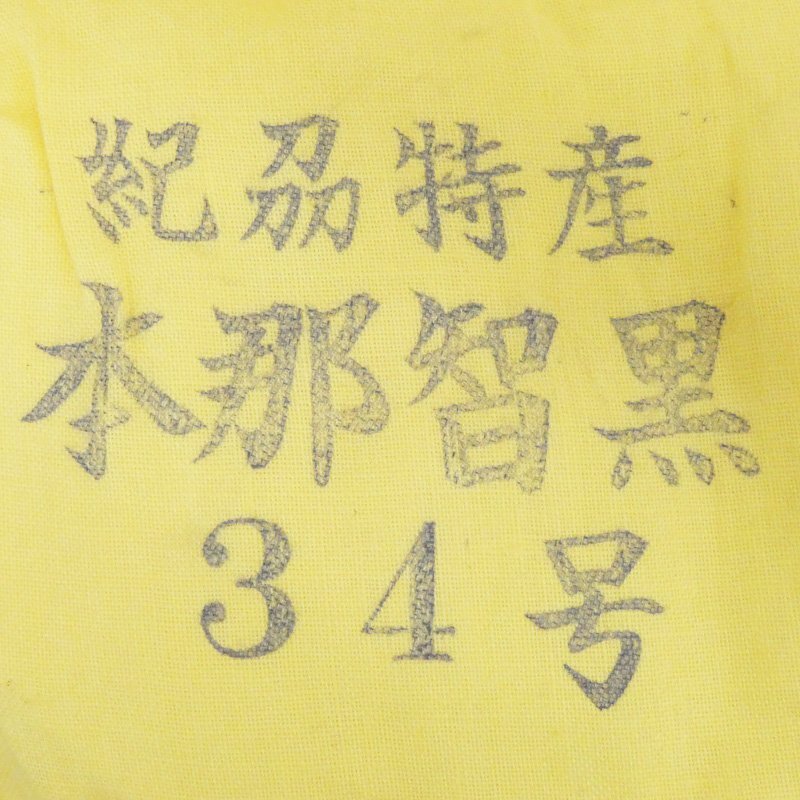 紀刕特産
本那智黒
34号